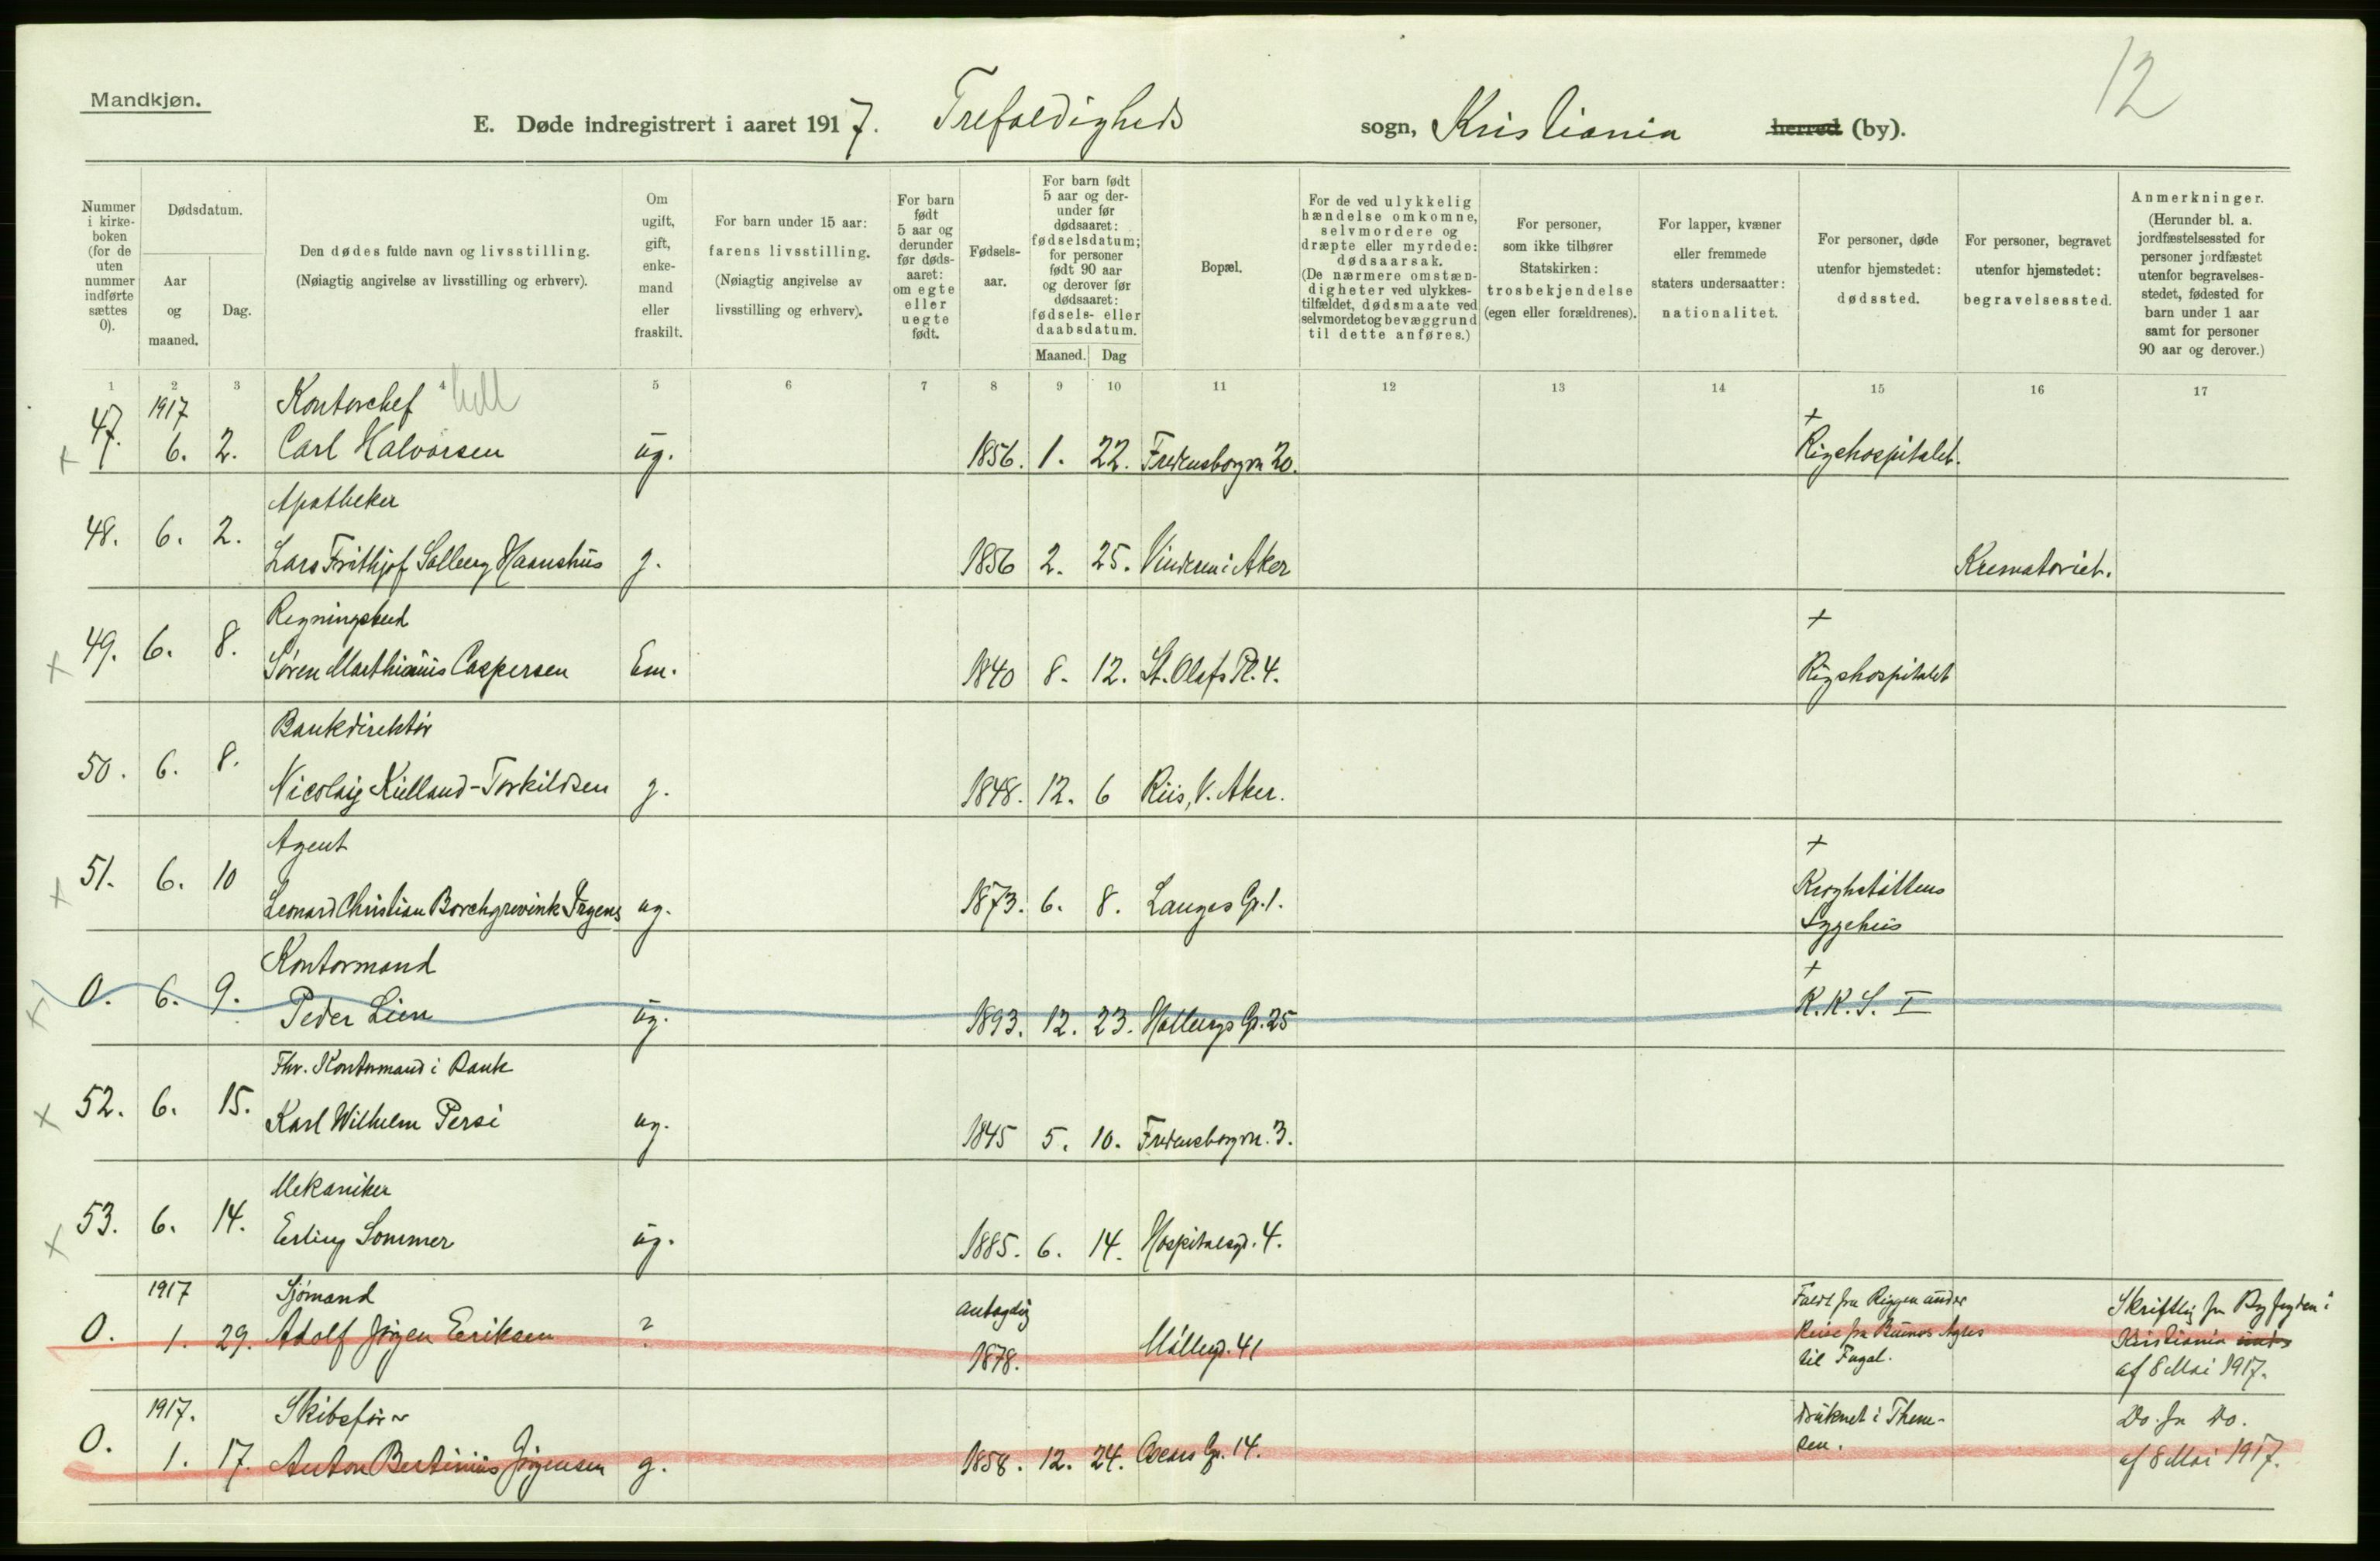 12
Mandkjøn.
E. Døde indregistrert i aaret 1917. Trefoldigheds sogn, Kristiania herred (by).
Nummer i kirke-boken (for de uten nummer indførte sættes 0).
Dødsdatum.
Aar og maaned.
Dag.
Den dødes fulde navn og livsstilling.
(Nøiagtig angivelse av livsstilling og erhverv).
Om ugift, gift, enke-mand eller fraskilt.
For barn under 15 aar:
farens livsstilling.
(Nøiagtig angivelse av livsstilling og erhverv).
For barn født 5 aar og derunder før døds-aaret: om egte eller uegte født.
Fødsels-aar.
For barn født 5 aar og der-under før dødsaaret: fødselsdatum; for personer født 90 aar og derover før dødsaaret: fødsels- eller daabsdatum.
Maaned. Dag
Bopæl.
For de ved ulykkelig hændelse omkomne, selvmordere og dræpte eller myrdede: dødsaarsak.
(De nærmere omstæn-digheter ved ulykkes-tilfældet, dødsmaate ved selvmordet og bevæggrund til dette anføres.)
For personer, som ikke tilhører Statskirken: trosbekjendelse (egen eller forældrenes).
For lapper, kvæner eller fremmede staters undersaatter: nationalitet.
For personer, døde utenfor hjemstedet: dødssted.
For personer, begravet utenfor hjemstedet: begravelsessted.
Anmerkninger.
(Herunder bl. a. jordfæstelsessted for personer jordfæstet utenfor begravelses-stedet, fødested for barn under 1 aar samt for personer 90 aar og derover.)
1 2 3 4 5 6 7 8 9 10 11 12 13 14 15 16 17
1917 Kontorchef +
+ 47. 6. 2. Carl Halvorsen ug. 1856. 1. 22. Fredensborgvn 20. Rigshospitalet.
Apotheker
48. 6. 2. Lars Frithjof Solberg Haanshus g. 1856 2. 25. Vinderen i Aker Krematoriet.
Regningsbud +
+ 49. 6. 8. Søren Marthinius Caspersen Em. 1840 8. 12. St. Olafs Pl. 4. Rigshospitalet
Bankdirektør
50. 6. 8. Nicolaij Kielland-Torkildsen g. 1848. 12. 6 Riis, V. Aker.
Agent +
+ 51. 6. 10 Leonard Christian Borchgrevink ug. 1873. 6. 8. Langes G. 1. Kroghstøttens
Sygehus
Kontormand +
+ 0. 6. 9. Peder Lien ug. 1893. 12. 23. Holbergs G. 25 K. K. S. I
Fhv. Kontormand i Bank
+ 52. 6. 15. Karl Wilhelm Persi ug. 1845 5. 10. Fredensborgvn. 3.
Mekaniker
+ 53. 6. 14. Erling Sommer ug. 1885. 6. 14. Hospitalsgd. 4.
1917 Sjømand antagelig Faldt fra Riggen under Skriftlig fra Byfogden i
0. 1. 29. Adolf Jørgen Eriksen ? 1878. Møllergd. 41 Reise fra Buenos Ayres Kristiania
til af 8 Mai 1917.
1917. Skibsfører Druknet i Them- Do. fra Do.
0. 1. 17. Anton Bertinius Jørgensen g. 1858. 12. 24. Oscars G. 14. sen. af 8 Mai 1917.